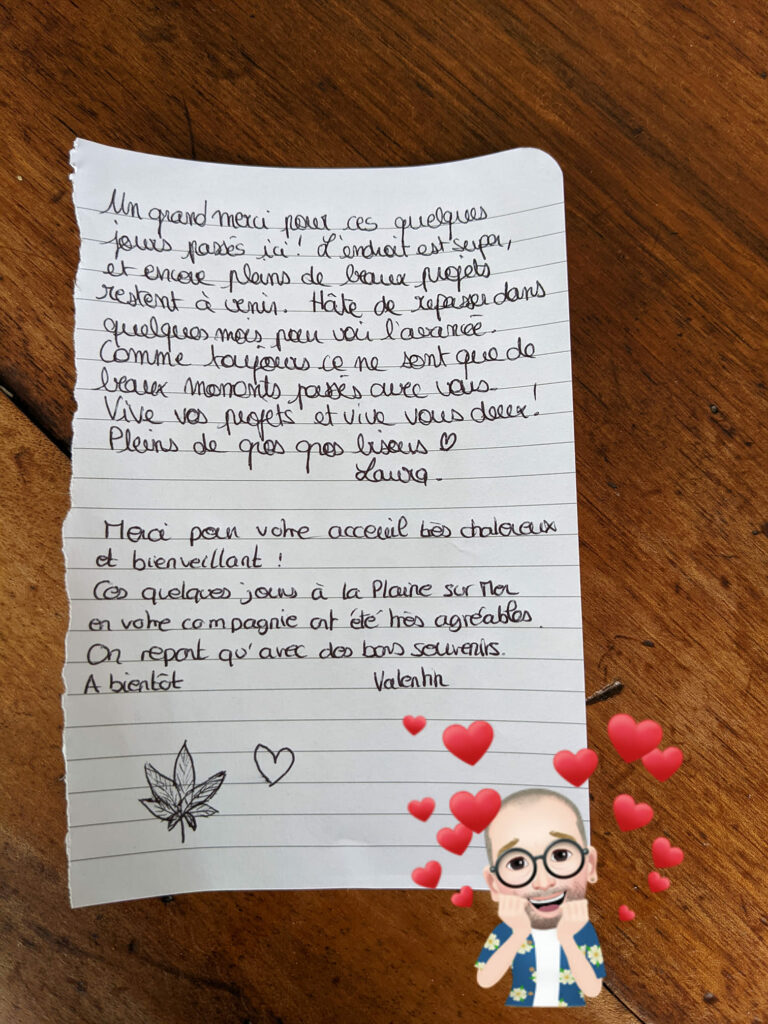 Un grand merci pour ces quelques
jours passés ici ! L'endroit est super,
et encore pleins de beaux projets
restent à venir. Hâte de repasser dans
quelques mois pour voir l'avancée.
Comme toujours ce ne sont que de
beaux moments passés avec vous.
Vive vos projets et vive vous deux !
Pleins de gros gros bisous ♡
Laura.
Merci pour votre acceuil très chaleureux
et bienveillant !
Ces quelques jours à la Plaine sur Mer
en votre compagnie ont été très agréables.
On repart qu'avec des bons souvenirs.
A bientôt Valentin